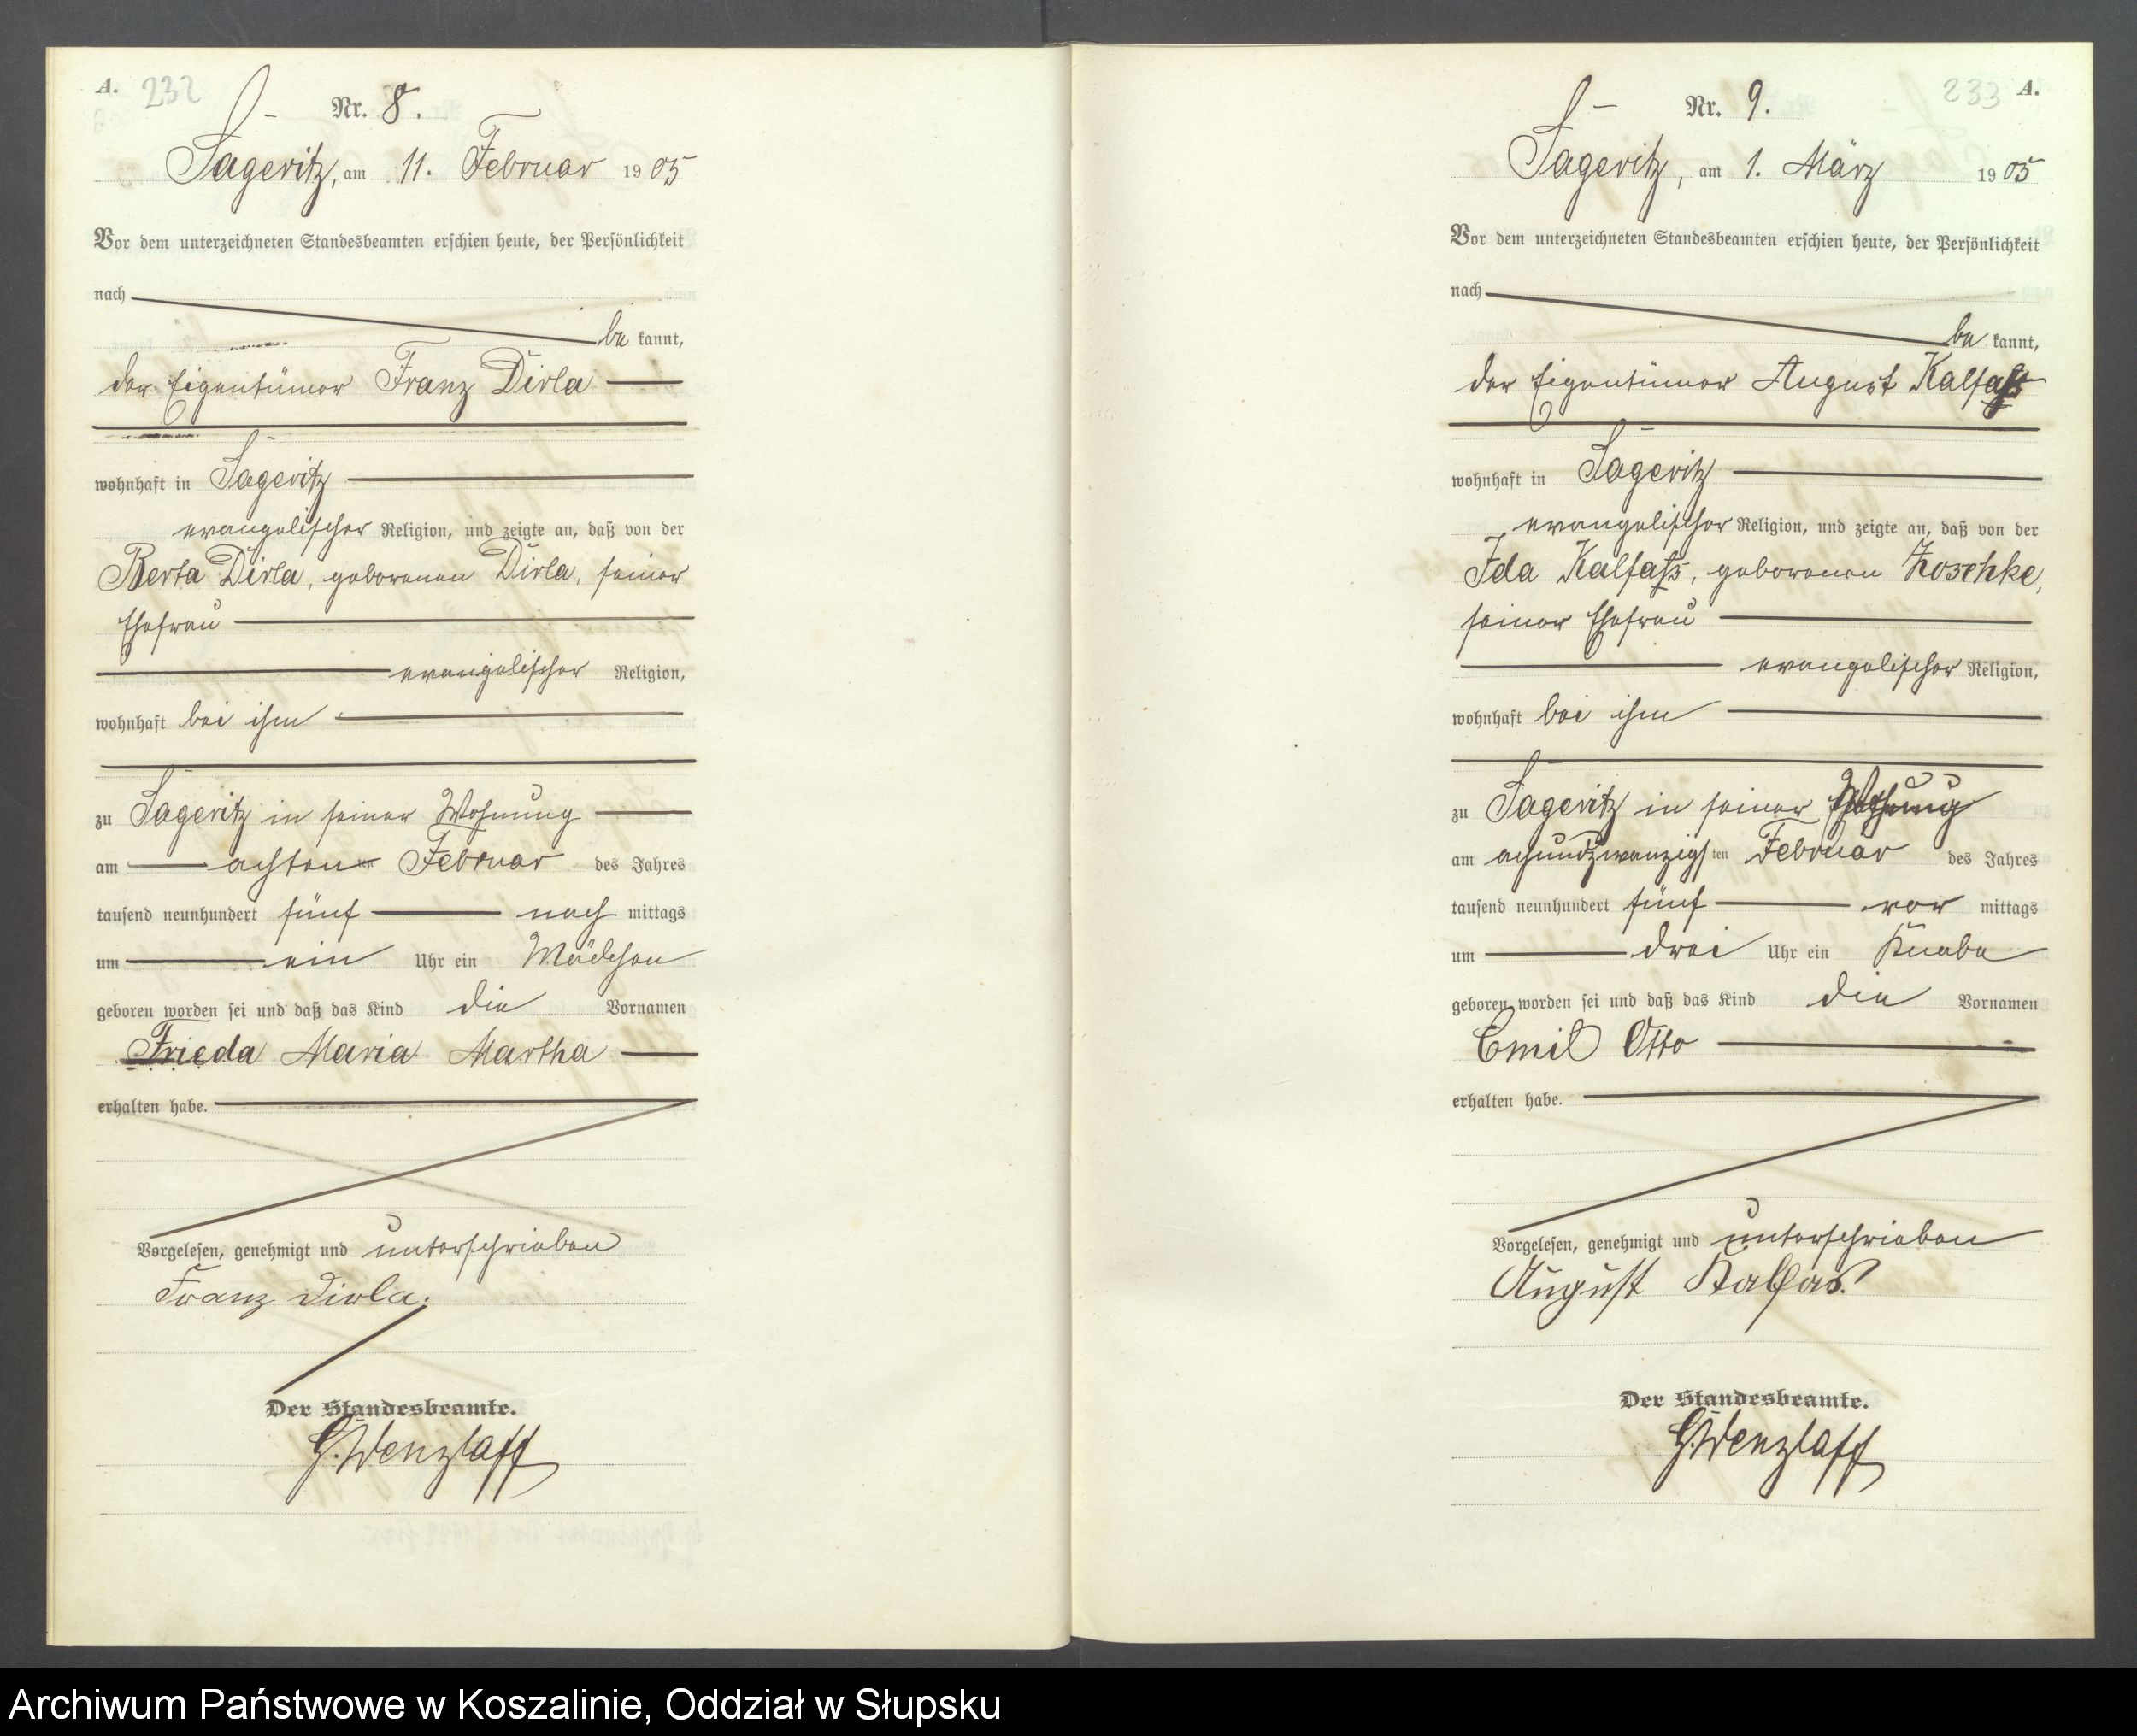 A. 232
Nr. 8.
Sageritz, am 11. Februar 1905
Vor dem unterzeichneten Standesbeamten erschien heute, der Persönlichkeit
nach
be kannt,
der Eigentümer Franz Dirla
wohnhaft in Sageritz
evangelischer Religion, und zeigte an, daß von der
Berta Dirla, geborenen Dirla, seiner
Ehefrau
evangelischer Religion,
wohnhaft bei ihm
zu Sageritz in seiner Wohnung
am achten Februar des Jahres
tausend neunhundert fünf nach mittags
um ein Uhr ein Mädchen
geboren worden sei und daß das Kind die Vornamen
Frieda Maria Martha
erhalten habe.
Vorgelesen, genehmigt und unterschrieben
Franz Dirla.
Der Standesbeamte.
G. Wenzlaff
233 A.
Nr. 9.
Sageritz, am 1. März 1905
Vor dem unterzeichneten Standesbeamten erschien heute, der Persönlichkeit
nach
be kannt,
der Eigentümer August Kalfaß
wohnhaft in Sageritz
evangelischer Religion, und zeigte an, daß von der
Ida Kalfaß, geborenen Koschke,
seiner Ehefrau
evangelischer Religion,
wohnhaft bei ihm
zu Sageritz in seiner Wohnung
am achundzwanzigsten Februar des Jahres
tausend neunhundert fünf vor mittags
um drei Uhr ein Knabe
geboren worden sei und daß das Kind die Vornamen
Emil Otto
erhalten habe.
Vorgelesen, genehmigt und unterschrieben
August Kalfas.
Der Standesbeamte.
G. Wenzlaff
Archiwum Państwowe w Koszalinie, Oddział w Słupsku